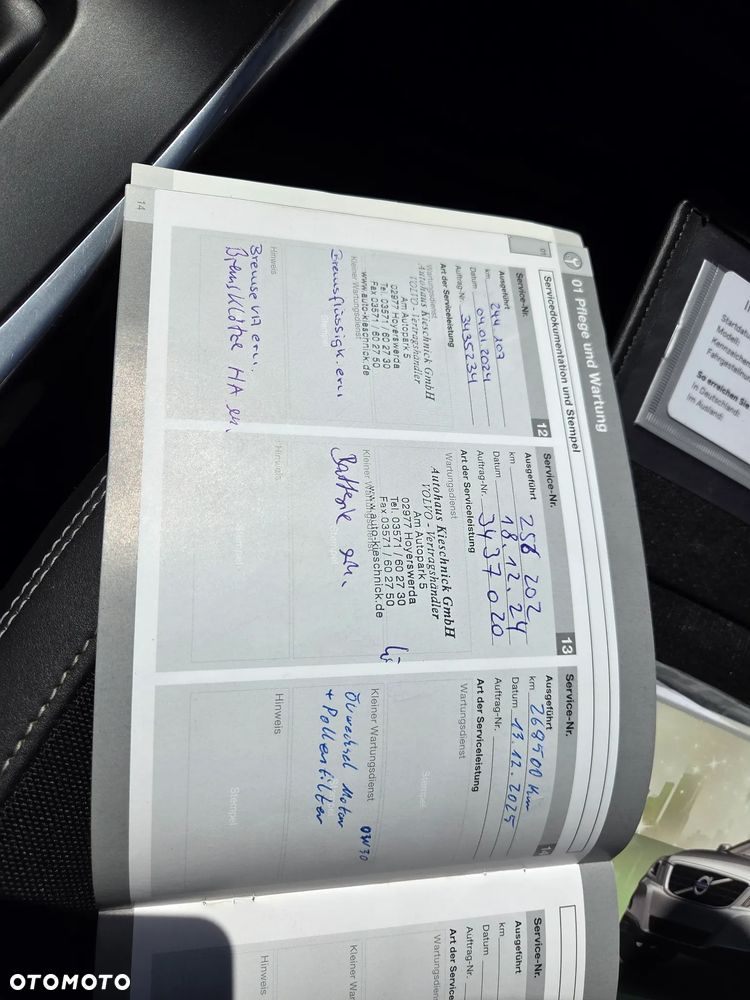 01 Pflege und Wartung
01
Servicedokumentation und Stempel
Service-Nr. 12
Ausgeführt
km 244 203
Datum 04.01.2024
Auftrag-Nr. 3435234
Art der Serviceleistung
Wartungsdienst
Autohaus Kieschnick GmbH
VOLVO - Vertragshändler
Am Autopark 5
02977 Hoyerswerda
Tel. 03571 / 60 27 30
Fax 03571 / 60 27 50
www.auto-kieschnick.de
Kleiner Wartungsdienst
Bremsflüssigk. ern
Hinweis
Bremse VA ern.
Bremsklötze HA ern.
Service-Nr. 13
Ausgeführt
km 258 202
Datum 18.12.24
Auftrag-Nr. 3437020
Art der Serviceleistung
Wartungsdienst
Autohaus Kieschnick GmbH
VOLVO - Vertragshändler
Am Autopark 5
02977 Hoyerswerda
Tel. 03571 / 60 27 30
Fax 03571 / 60 27 50
www.auto-kieschnick.de
Kleiner Wartungsdienst
Batterie ern.
Hinweis
Service-Nr. 14
Ausgeführt
km 268500 km
Datum 13.12.2025
Auftrag-Nr.
Art der Serviceleistung
Wartungsdienst
Stempel
Kleiner Wartungsdienst
Ölwechsel Motor 0W30
+ Pollenfilter
Hinweis
Stempel
14
Service-Nr.
Ausgeführt
km
Datum
Auftrag-Nr.
Art der Service
Wartungsdienst
Kleiner War
Hinweis
Startdatu
Modell:
Kennzeichen
Fahrgestelle
So erreichen Sie
In Deutschland:
Im Ausland:
VOLVO
OTOMOTO